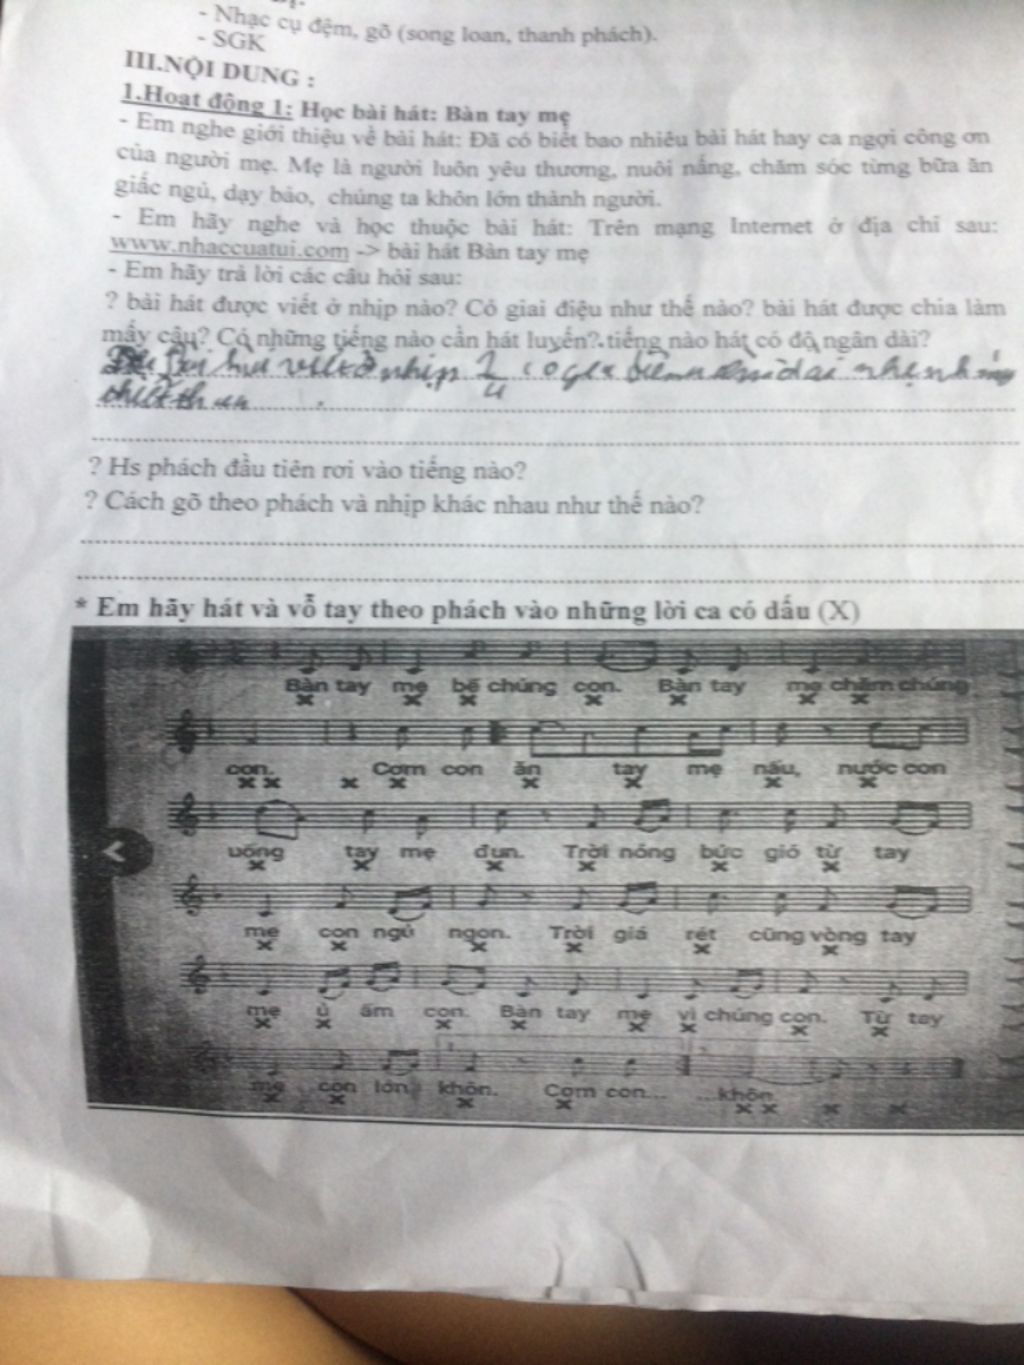 - Nhạc cụ đệm, gõ (song loan, thanh phách).
- SGK
III.NỘI DUNG :
1.Hoạt động 1: Học bài hát: Bàn tay mẹ
- Em nghe giới thiệu về bài hát: Đã có biết bao nhiêu bài hát hay ca ngợi công ơn
của người mẹ. Mẹ là người luôn yêu thương, nuôi nấng, chăm sóc từng bữa ăn
giấc ngủ, dạy bảo, chúng ta khôn lớn thành người.
- Em hãy nghe và học thuộc bài hát: Trên mạng Internet ở địa chỉ sau:
www.nhaccuatui.com -> bài hát Bàn tay mẹ
- Em hãy trả lời các câu hỏi sau:
? bài hát được viết ở nhịp nào? Có giai điệu như thế nào? bài hát được chia làm
mấy câu? Có những tiếng nào cần hát luyến? tiếng nào hát có độ ngân dài?
ở nhịp 2/4
? Hs phách đầu tiên rơi vào tiếng nào?
? Cách gõ theo phách và nhịp khác nhau như thế nào?
* Em hãy hát và vỗ tay theo phách vào những lời ca có dấu (X)
Bàn tay mẹ bế chúng con. Bàn tay mẹ chăm chúng
con. Cơm con ăn tay mẹ nấu, nước con
uống tay mẹ đun. Trời nóng bức gió từ tay
mẹ con ngủ ngon. Trời giá rét cũng vòng tay
mẹ ủ ấm con. Bàn tay mẹ vì chúng con. Từ tay
mẹ con lớn khôn. Cơm con... ...khôn.